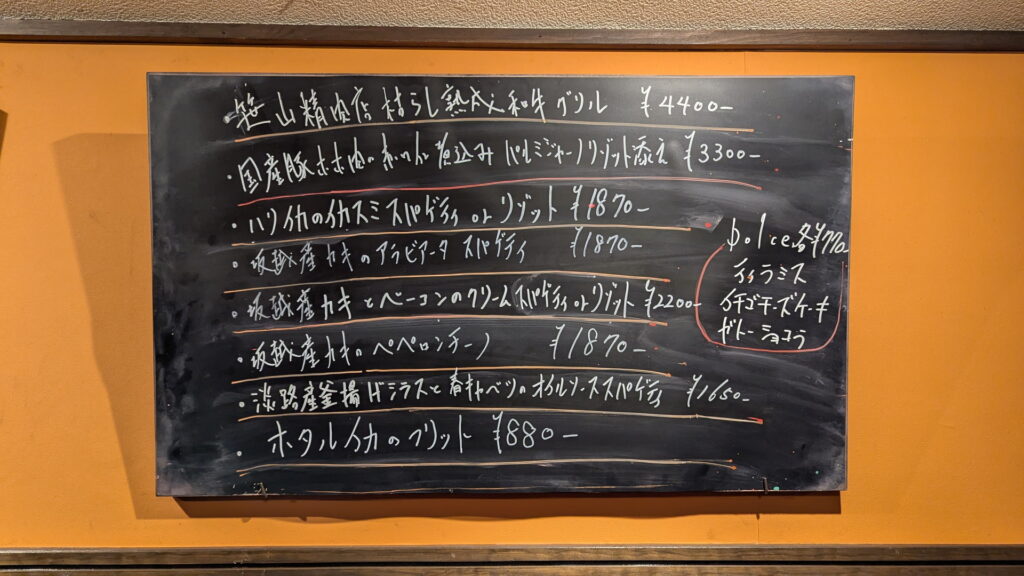 ・笹山精肉店枯らし熟成和牛グリル ¥4400-
・国産豚ホホ肉の赤ワイン煮込みパルミジャーノリゾット添え ¥3300-
・ハリイカのイカスミスパゲティ or リゾット ¥1870-
・坂越産カキのアラビアータ スパゲティ ¥1870-
・坂越産カキとベーコンのクリームスパゲティ or リゾット ¥2200-
・坂越産カキのペペロンチーノ ¥1870-
・淡路産釜揚げシラスと春キャベツのオイルソーススパゲティ ¥1650-
・ホタルイカのフリット ¥880-
Dolce 各¥770
ティラミス
イチゴチーズケーキ
ガトーショコラ